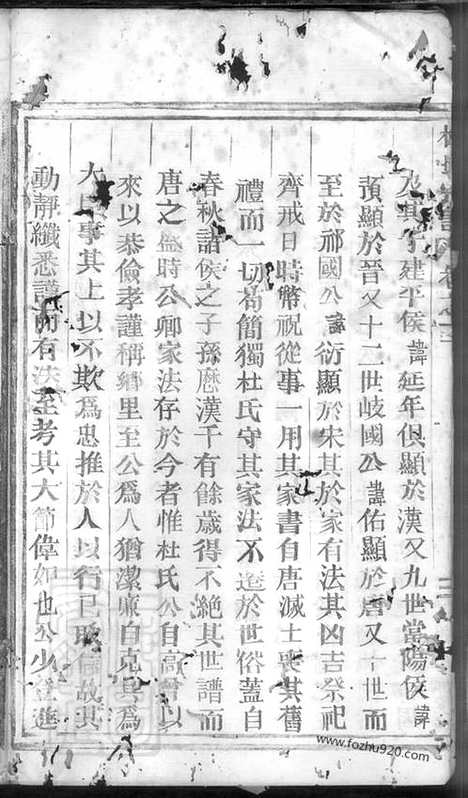 及其子建平侯諱延年俱顯於漢又九世當陽侯諱
預顯於晉又十二世岐國公諱佑顯於唐又十世而
至於祁國公諱衍顯於宋其於家有法其凶吉祭祀
齊戒日時幣祝從事一用其家書自唐滅士喪其舊
禮而一切苟簡獨杜氏守其家法不遷於世俗蓋自
春秋諸侯之子孫歷漢千有餘歲得不絕其世譜而
唐之盛時公卿家法存於今者惟杜氏公自高曾以
來以恭儉孝謹稱鄉里至公為人猶潔廉自克其為
大臣事其上以不欺為忠推於人以行己取信故其
動靜纖悉謹而有法至考其大節偉如也公少登進
www.fozhu920.com